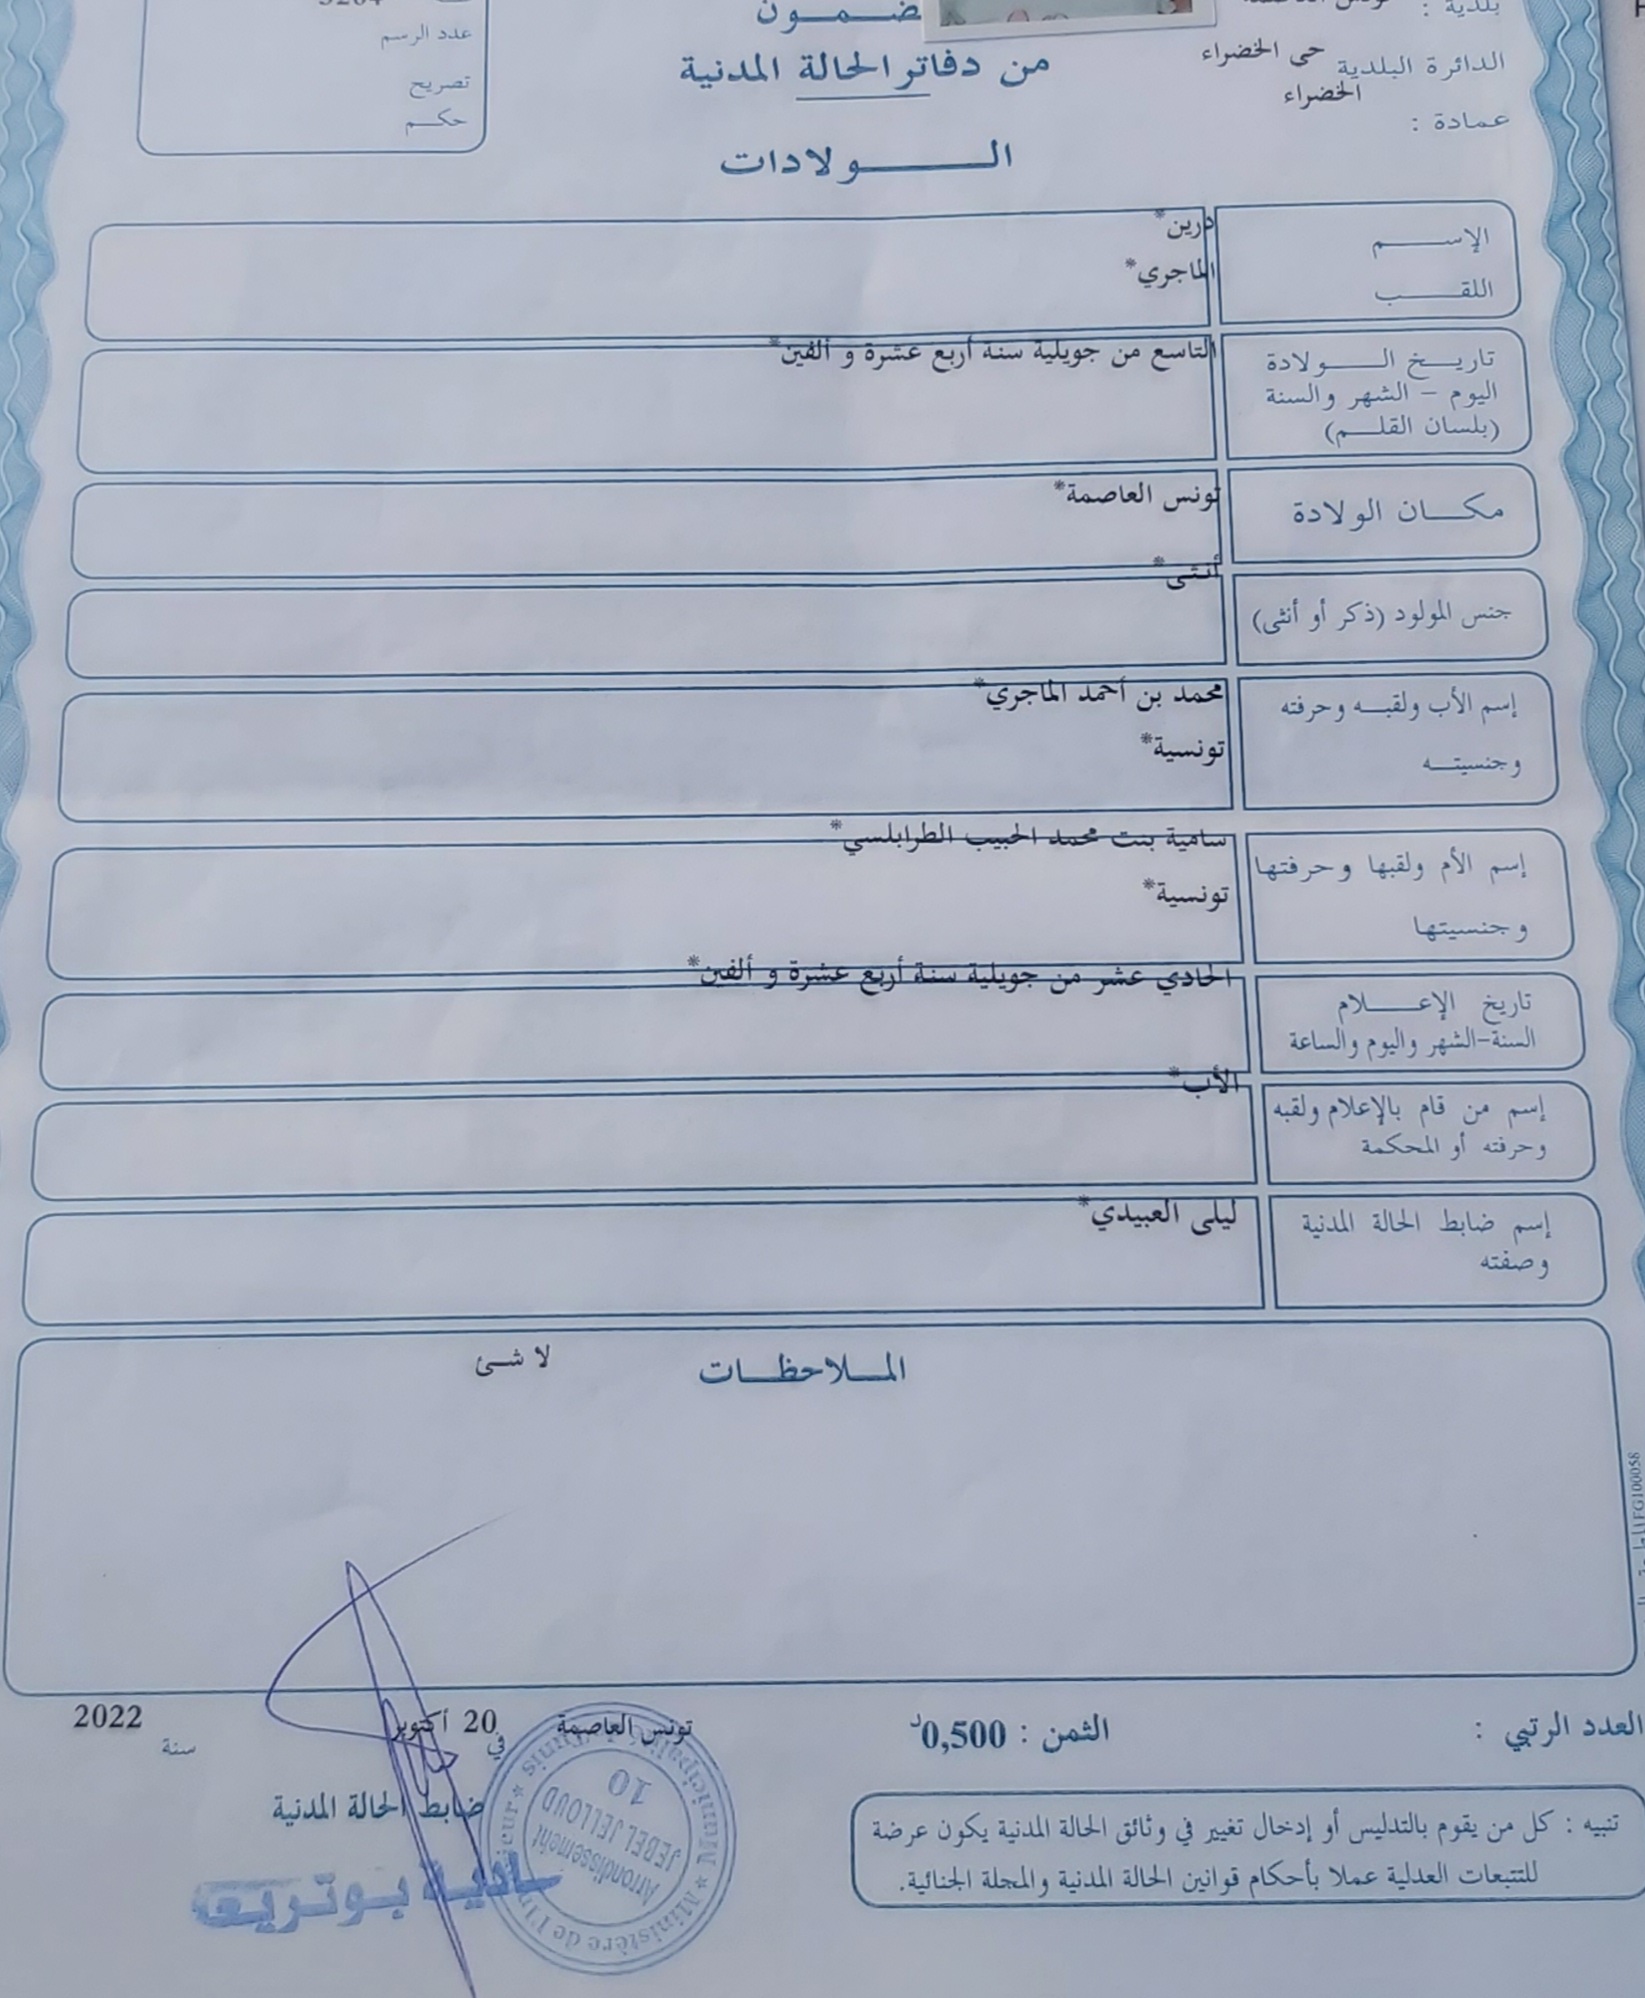 بلدية :
الدائرة البلدية حي الخضراء
الخضراء
عمادة :
عدد الرسم
تصريح
حكم
من دفاتر الحالة المدنية
الولادات
الإسم درين*
اللقب الماجري*
تاريخ الولادة التاسع من جويلية سنة أربع عشرة و ألفين*
اليوم - الشهر والسنة
(بلسان القلم)
مكان الولادة تونس العاصمة*
جنس المولود (ذكر أو أنثى) أنثى*
إسم الأب ولقبه وحرفته محمد بن أحمد الماجري*
وجنسيته تونسية*
إسم الأم ولقبها وحرفتها سامية بنت محمد الحبيب الطرابلسي*
وجنسيتها تونسية*
تاريخ الإعلام الحادي عشر من جويلية سنة أربع عشرة و ألفين*
السنة-الشهر واليوم والساعة
إسم من قام بالإعلام ولقبه الأب*
وحرفته أو المحكمة
إسم ضابط الحالة المدنية ليلى العبيدي*
وصفته
الملاحظات لا شئ
العدد الرتبي :
الثمن : 0,500د
تونس العاصمة في 20 أكتوبر سنة 2022
ضابط الحالة المدنية
تنبيه : كل من يقوم بالتدليس أو إدخال تغيير في وثائق الحالة المدنية يكون عرضة
للتتبعات العدلية عملا بأحكام قوانين الحالة المدنية والمجلة الجنائية.
Ministère de l'Intérieur * Municipalité Tunis *
Arrondissement
JEBEL JELLOUD
10
بوتريعة